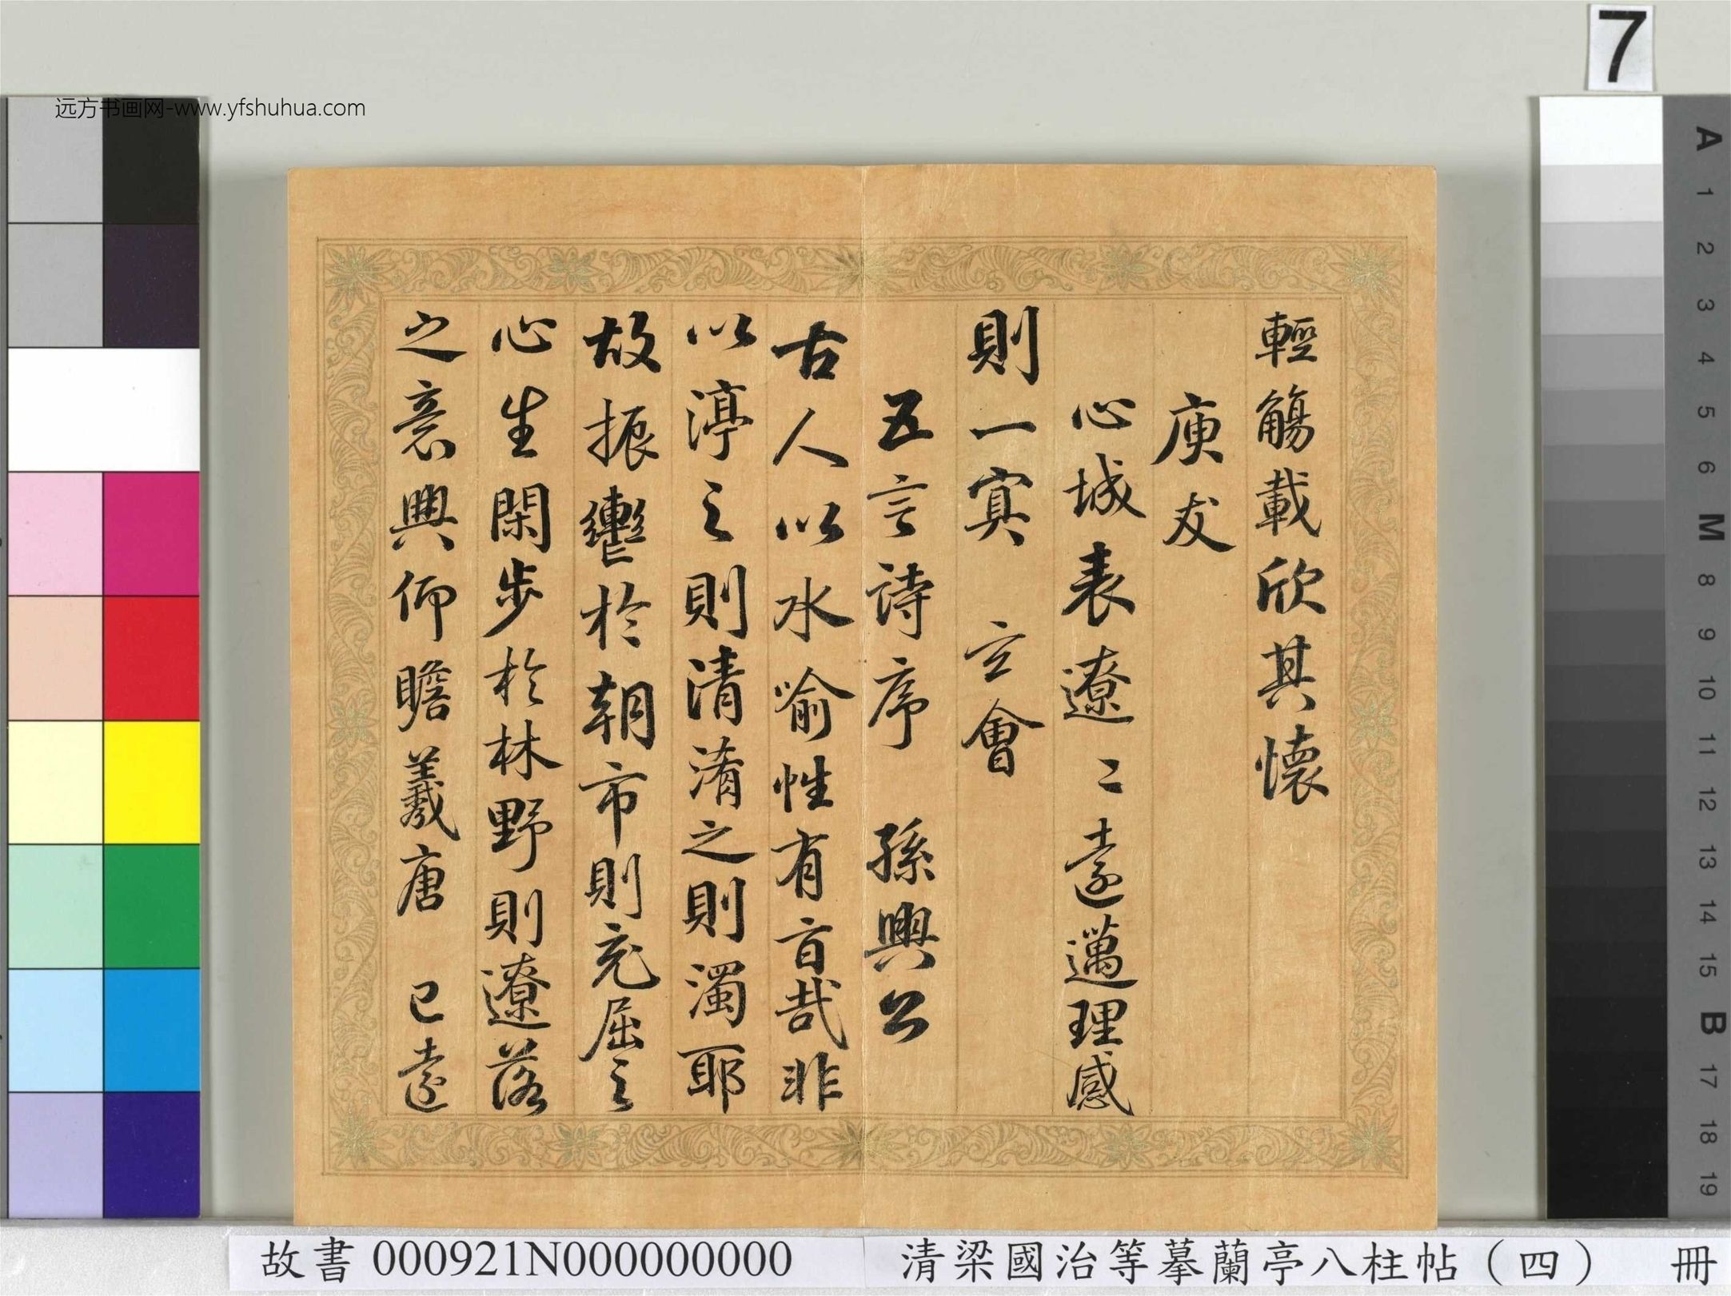 远方书画网-www.yfshuhua.com
7
輕觴載欣其懷
庾友
心城表遼〻遠邁理感
則一冥 玄會
五言詩序 孫興公
古人以水喻性有旨哉非
以渟之則清淆之則濁耶
故振轡於朝市則充屈之
心生閑步於林野則遼落
之意興仰瞻羲唐 已遠
A 1 2 3 4 5 6 M 8 9 10 11 12 13 14 15 B 17 18 19
故書 000921N000000000
清梁國治等摹蘭亭八柱帖（四） 冊